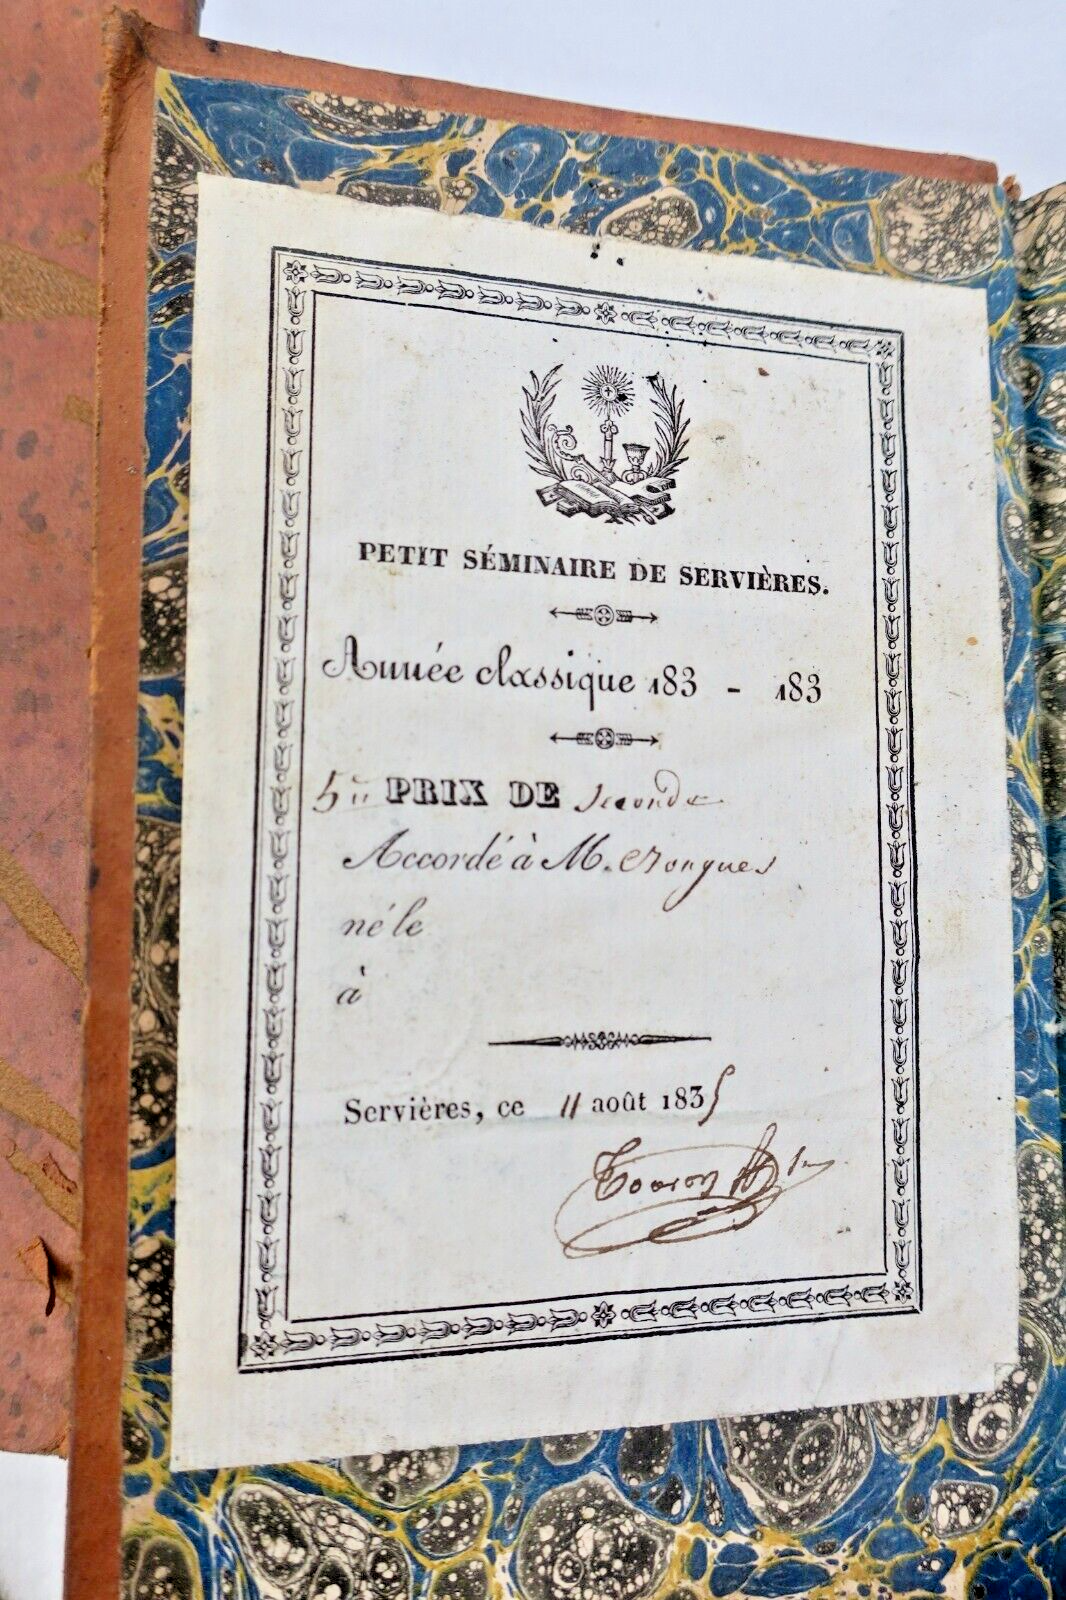 PETIT SÉMINAIRE DE SERVIÈRES.
Année classique 183 - 183
PRIX DE seconde
Accordé à M.
né le
à
Servières, ce 11 août 1835